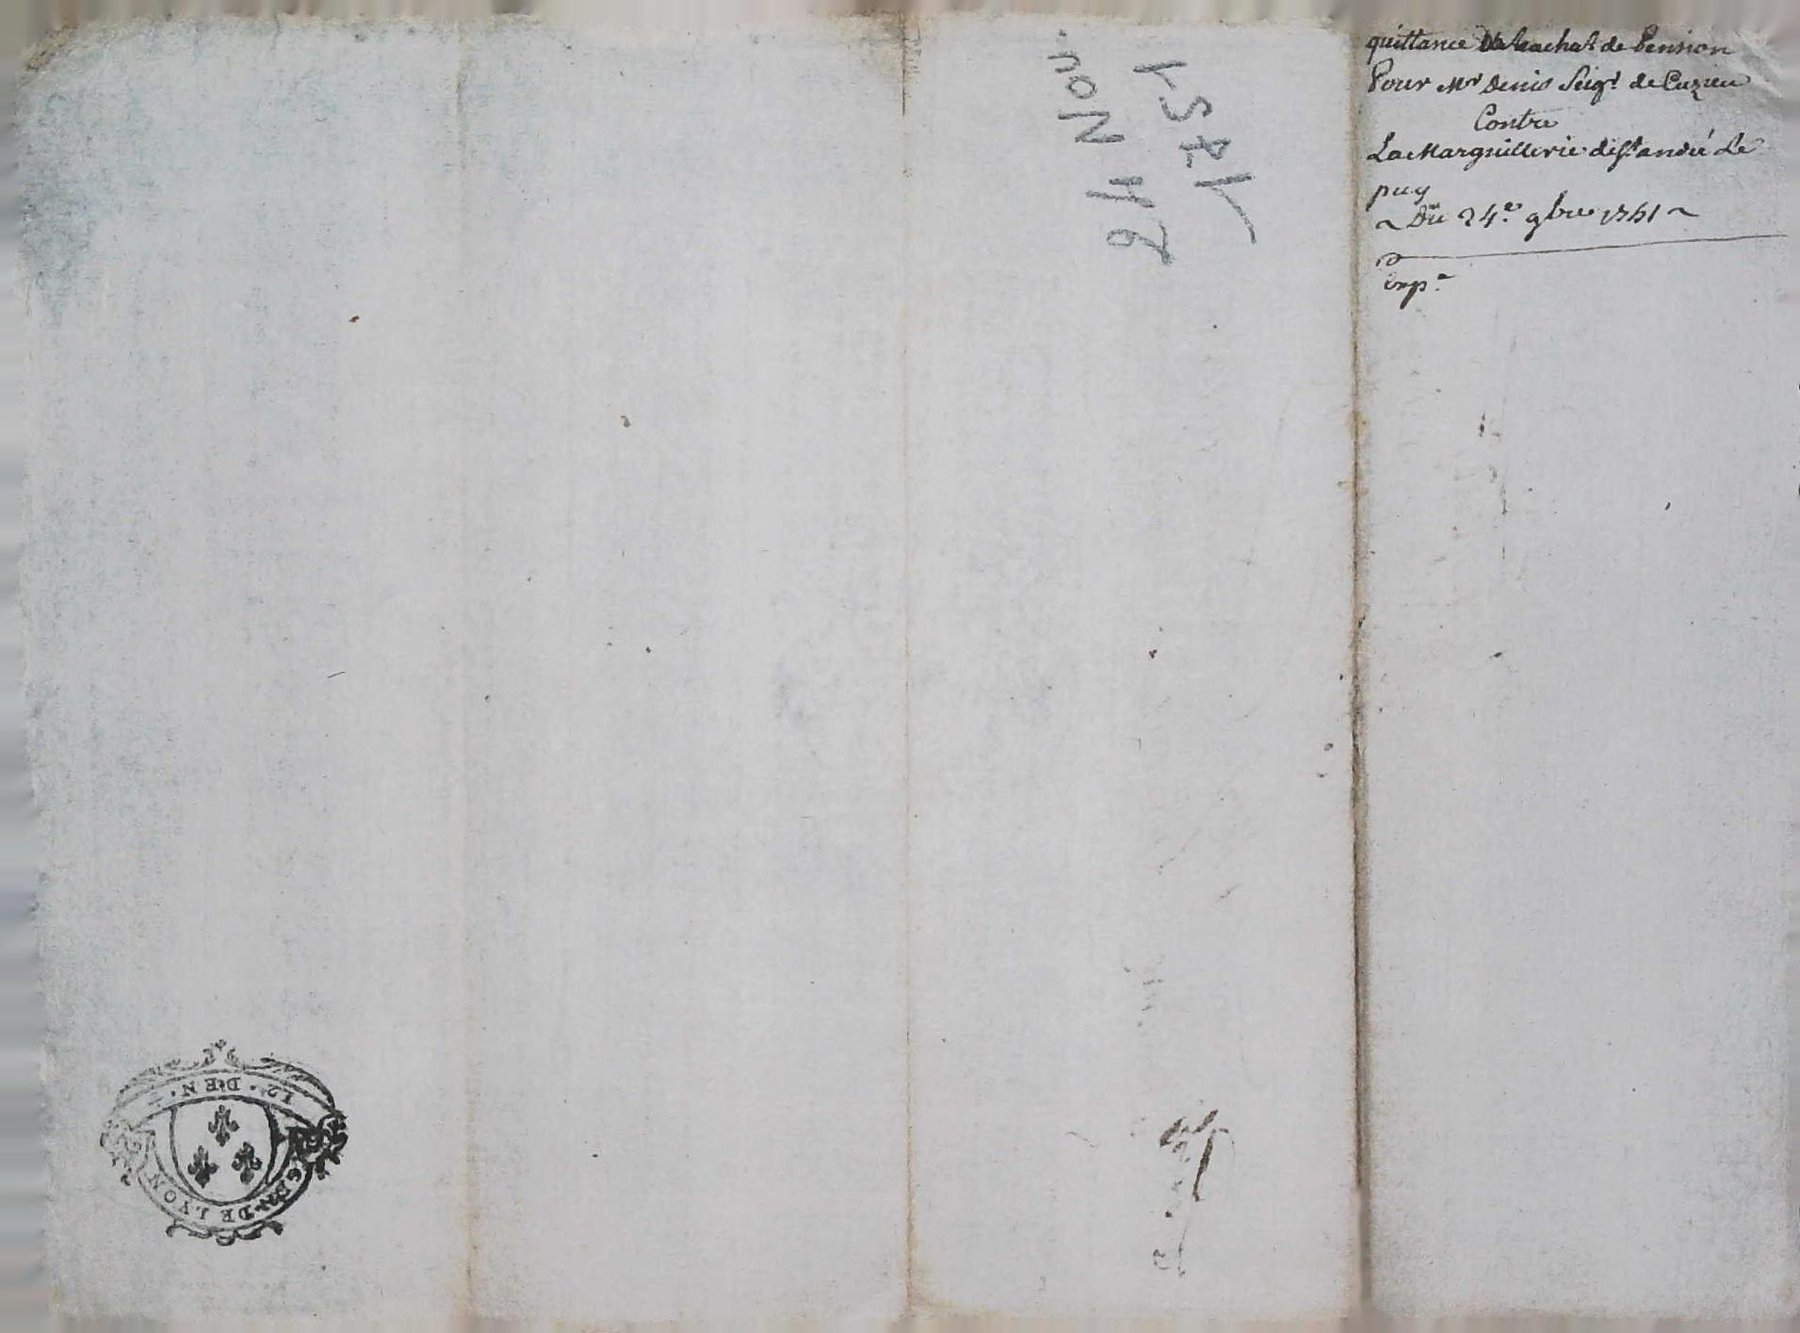 quittance de Rachat de Pension
Pour Mr Denis Seigr de Cuzieu
Contre
La Marguillerie de St andré Le
puy
~ Du 24e 9bre 1751 ~
Expe
1751
16 Nou.
12. DEN.
GEN. DE LYON